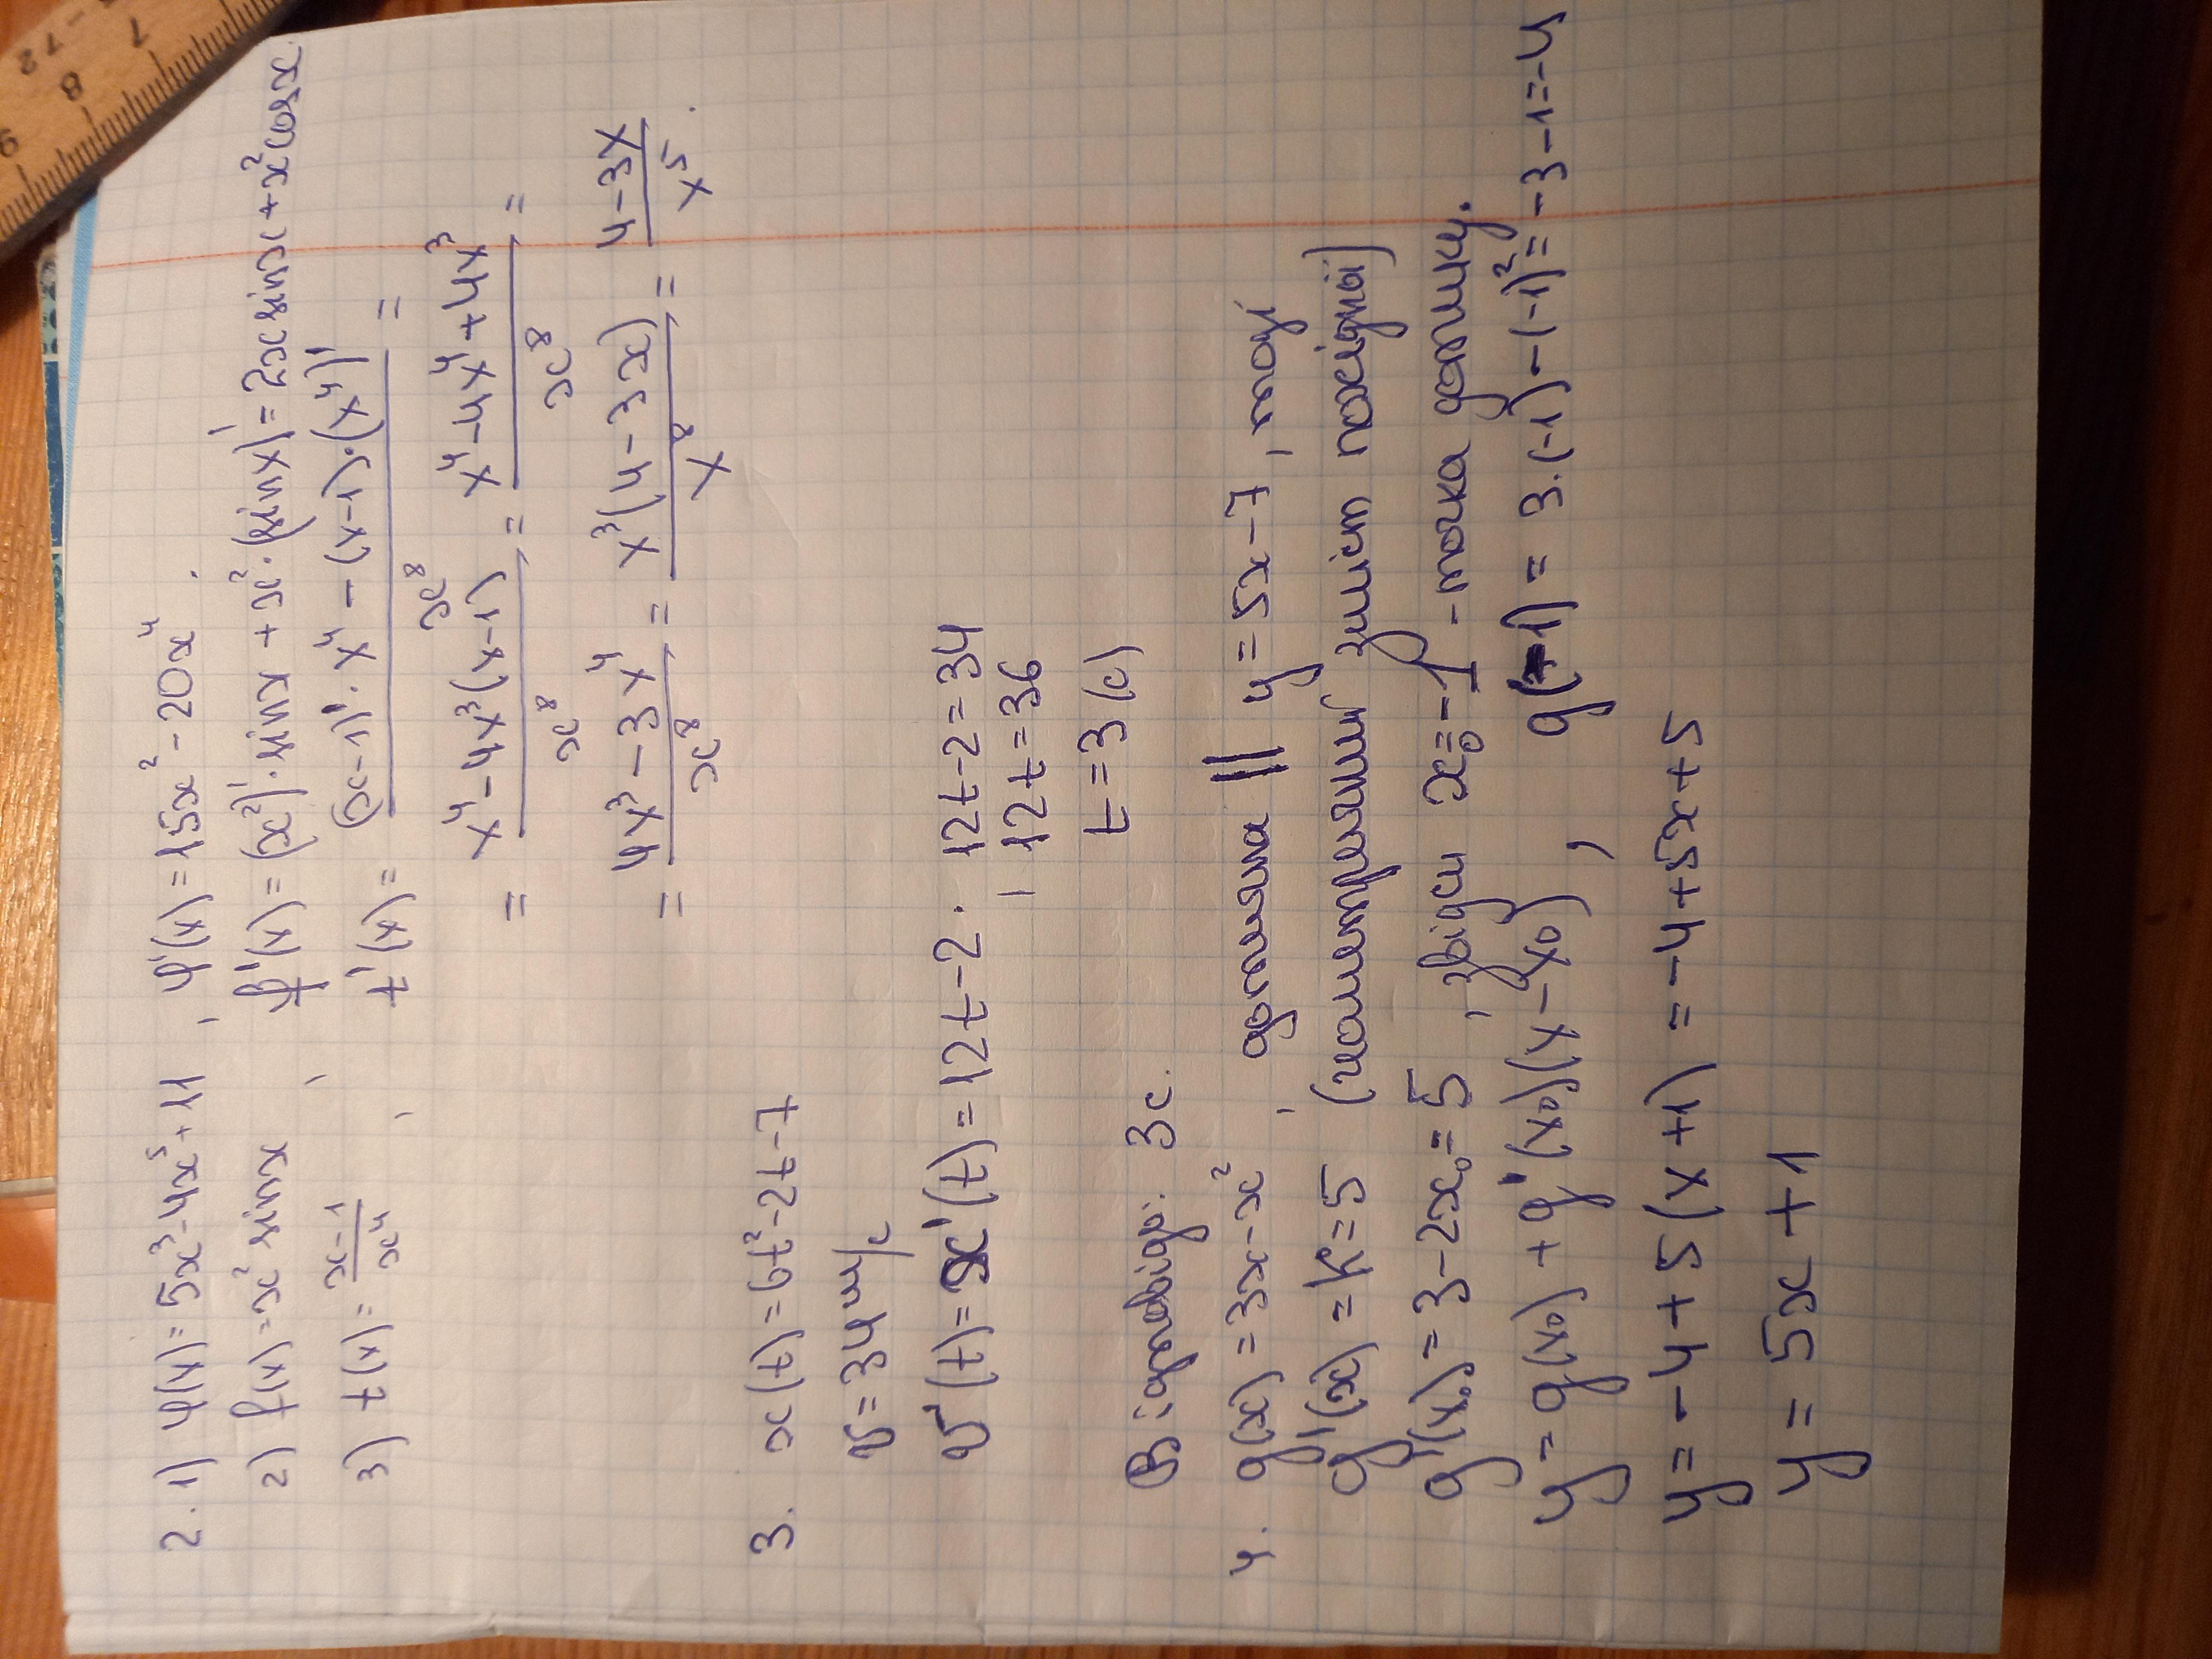 2. 1) φ(x) = 5x³ - 4x⁵ + 11 , φ'(x) = 15x² - 20x⁴.
2) f(x) = x² sinx , f'(x) = (x²)'·sinx + x²·(sinx)' = 2x sinx + x² cosx
3) t(x) = (x-1)/x⁴ , t'(x) = ((x-1)'·x⁴ - (x-1)·(x⁴)')/x⁸ =
= (x⁴ - 4x³(x-1))/x⁸ = (x⁴ - 4x⁴ + 4x³)/x⁸ =
= (4x³ - 3x⁴)/x⁸ = x³(4 - 3x)/x⁸ = (4 - 3x)/x⁵.
3. x(t) = 6t² - 2t - 7
v = 34 м/с
v(t) = x'(t) = 12t - 2. 12t - 2 = 34
, 12t = 36
t = 3 (с)
Відповідь: 3с.
4. g(x) = 3x - x² , дотична || y = 5x - 7 , тоді
g'(x) = k = 5 (геометричний зміст похідної)
g'(x₀) = 3 - 2x₀ = 5 , звідси x₀ = -1 - точка дотику.
y = g(x₀) + g'(x₀)(x - x₀) , g(-1) = 3·(-1) - (-1)² = -3 - 1 = -4
y = -4 + 5(x + 1) = -4 + 5x + 5
y = 5x + 1
9 8 7 -72